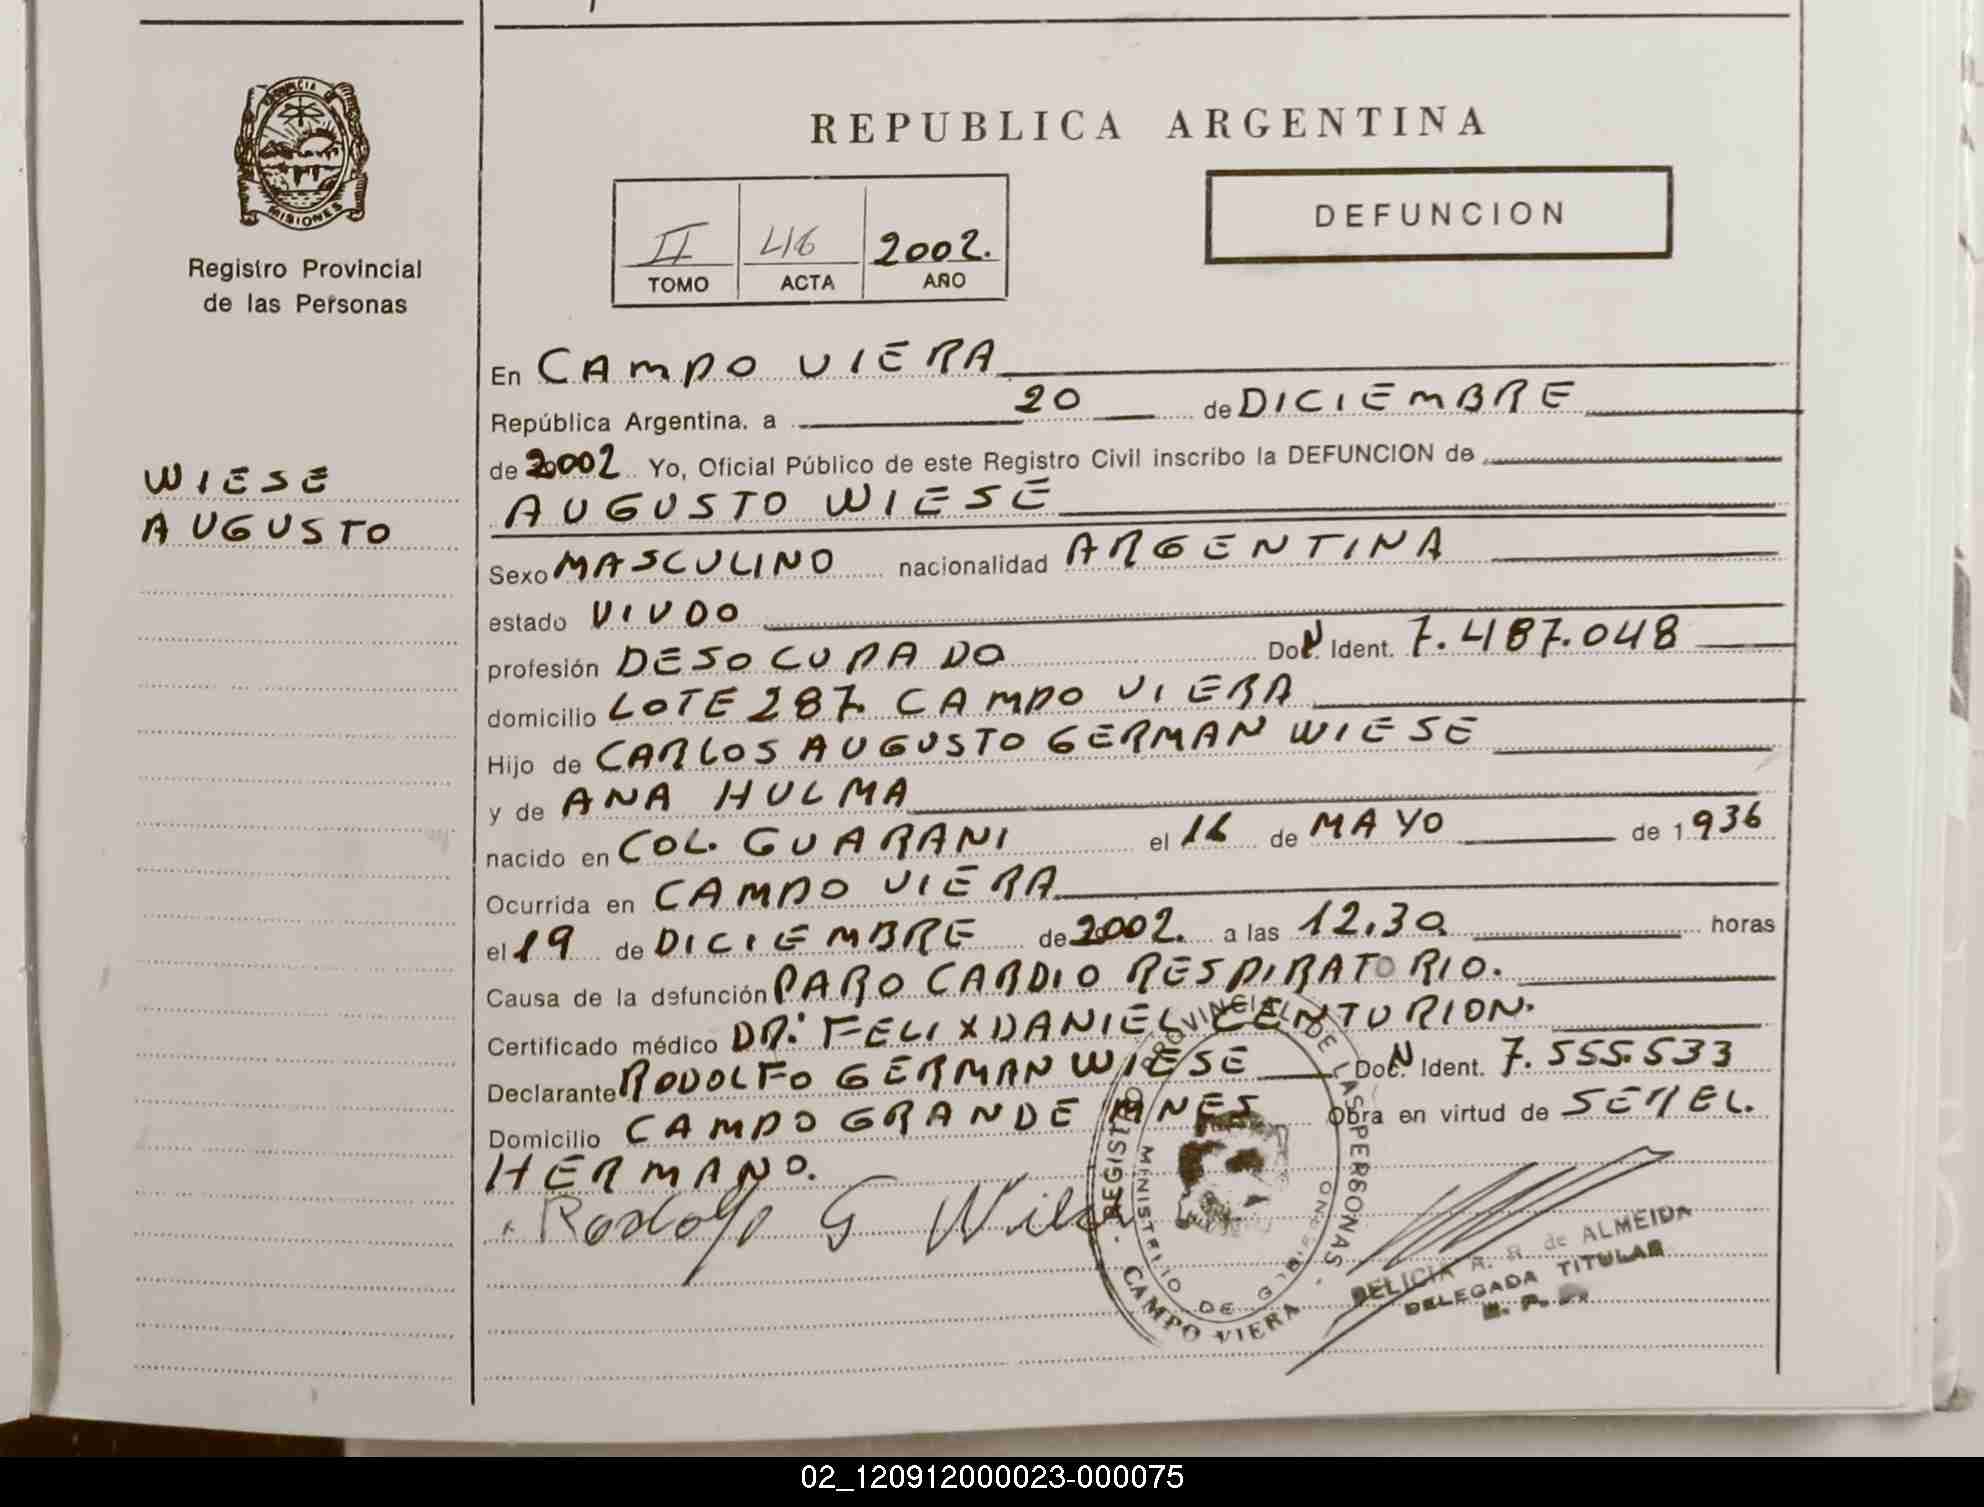 PROVINCIA DE
MISIONES
Registro Provincial
de las Personas
WIESE
AUGUSTO
REPUBLICA ARGENTINA
II 416 2002.
TOMO ACTA AÑO
DEFUNCION
En CAMPO VIERA
República Argentina, a 20 de DICIEMBRE
de 2002 Yo, Oficial Público de este Registro Civil inscribo la DEFUNCION de
AUGUSTO WIESE
Sexo MASCULINO nacionalidad ARGENTINA
estado VIUDO
profesión DESOCUPADO Doc. Ident. 7.487.048
domicilio LOTE 287. CAMPO VIERA
Hijo de CARLOS AUGUSTO GERMAN WIESE
y de ANA HULMA
nacido en COL. GUARANI el 16 de MAYO de 1936
Ocurrida en CAMPO VIERA
el 19 de DICIEMBRE de 2002. a las 12.30. horas
Causa de la defunción PARO CARDIO RESPIRATORIO.
Certificado médico DR. FELIX DANIEL CENTURION.
Declarante RODOLFO GERMAN WIESE Doc. Ident. 7.555.533
Domicilio CAMPO GRANDE MNES Obra en virtud de SER EL
HERMANO.
Rodolfo G
REGISTRO PROVINCIAL DE LAS PERSONAS
MINISTERIO DE GOBIERNO
CAMPO VIERA
DELICIA A. R. de ALMEIDA
DELEGADA TITULAR
02_120912000023-000075